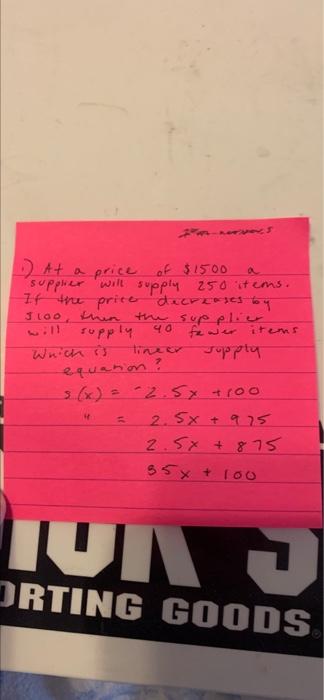 1) At a price of $1500 a
supplier will supply 250 items.
If the price decreases by
$100, then the supplier
will supply 40 fewer items
Which is linear supply
equation?
s(x) = -2.5x +100
" = 2.5x + 975
2.5x + 875
35x + 100
ORTING GOODS